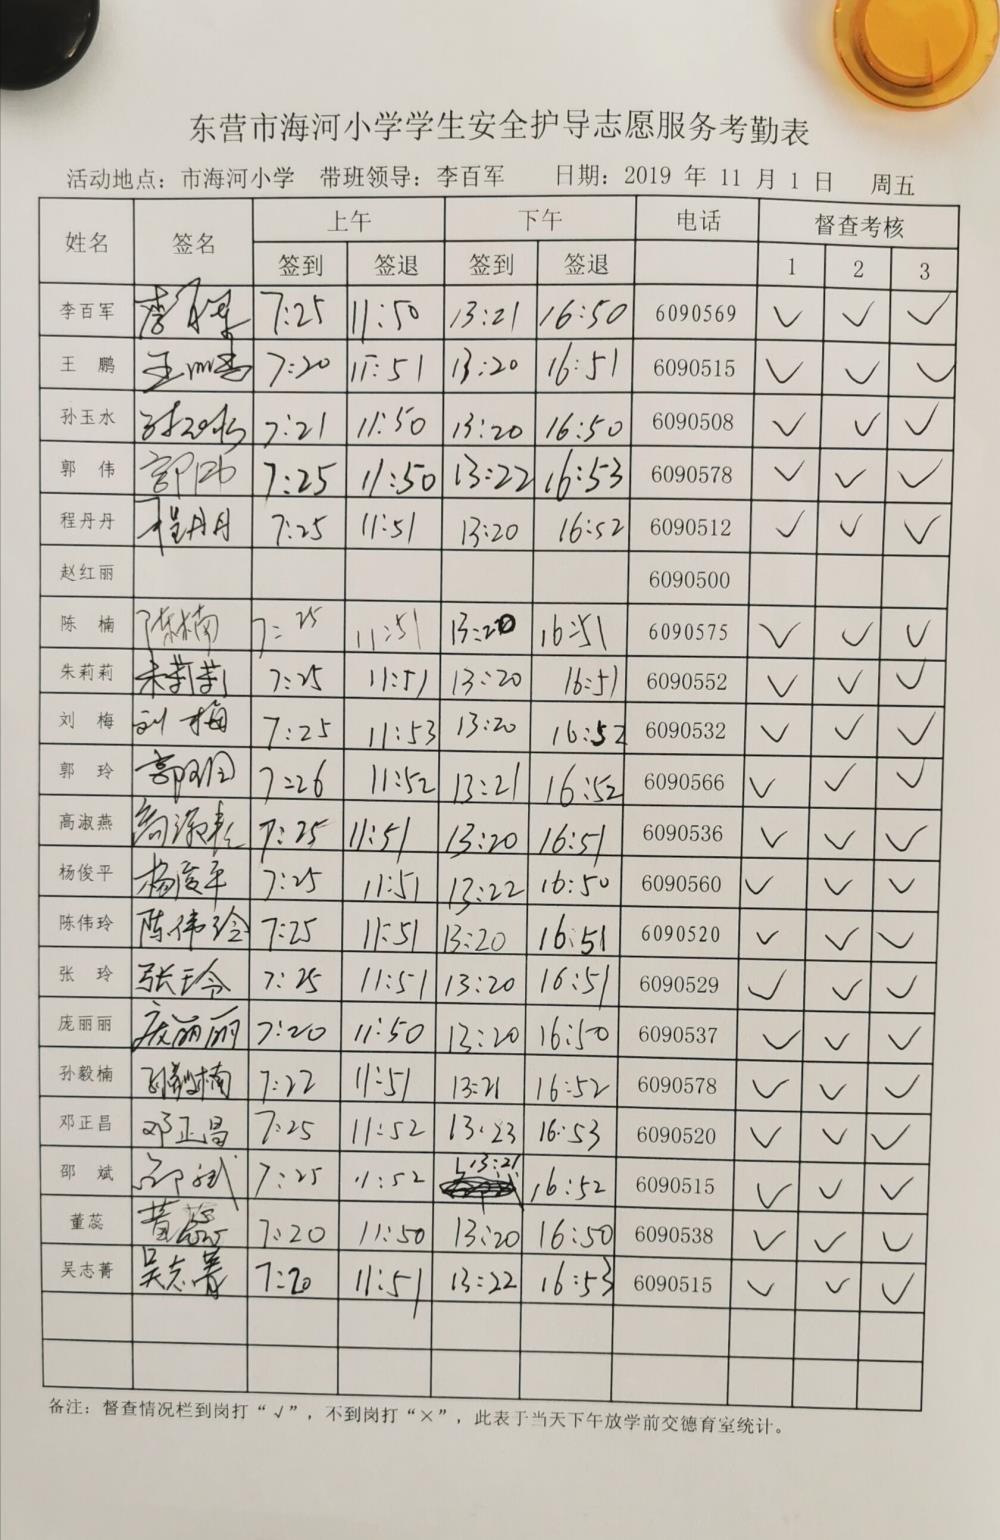 东营市海河小学学生安全护导志愿服务考勤表
活动地点：市海河小学 带班领导：李百军 日期：2019 年 11 月 1 日 周五
姓名 签名 上午 下午 电话 督查考核
签到 签退 签到 签退 1 2 3
李百军 李百军 7:25 11:50 13:21 16:50 6090569 ✓ ✓ ✓
王 鹏 王鹏 7:20 11:51 13:20 16:51 6090515 ✓ ✓ ✓
孙玉水 孙玉水 7:21 11:50 13:20 16:50 6090508 ✓ ✓ ✓
郭 伟 郭伟 7:25 11:50 13:22 16:53 6090578 ✓ ✓ ✓
程丹丹 程丹丹 7:25 11:51 13:20 16:52 6090512 ✓ ✓ ✓
赵红丽 6090500
陈 楠 陈楠 7:25 11:51 13:20 16:51 6090575 ✓ ✓ ✓
朱莉莉 朱莉莉 7:25 11:51 13:20 16:51 6090552 ✓ ✓ ✓
刘 梅 刘梅 7:25 11:53 13:20 16:52 6090532 ✓ ✓ ✓
郭 玲 郭玲 7:26 11:52 13:21 16:52 6090566 ✓ ✓ ✓
高淑燕 高淑燕 7:25 11:51 13:20 16:51 6090536 ✓ ✓ ✓
杨俊平 杨俊平 7:25 11:51 13:22 16:50 6090560 ✓ ✓ ✓
陈伟玲 陈伟玲 7:25 11:51 13:20 16:51 6090520 ✓ ✓ ✓
张 玲 张玲 7:25 11:51 13:20 16:51 6090529 ✓ ✓ ✓
庞丽丽 庞丽丽 7:20 11:50 13:20 16:50 6090537 ✓ ✓ ✓
孙毅楠 孙毅楠 7:22 11:51 13:21 16:52 6090578 ✓ ✓ ✓
邓正昌 邓正昌 7:25 11:52 13:23 16:53 6090520 ✓ ✓ ✓
邵 斌 邵斌 7:25 11:52 13:21 16:52 6090515 ✓ ✓ ✓
董蕊 董蕊 7:20 11:50 13:20 16:50 6090538 ✓ ✓ ✓
吴志菁 吴志菁 7:20 11:51 13:22 16:53 6090515 ✓ ✓ ✓
备注：督查情况栏到岗打“√”，不到岗打“×”，此表于当天下午放学前交德育室统计。